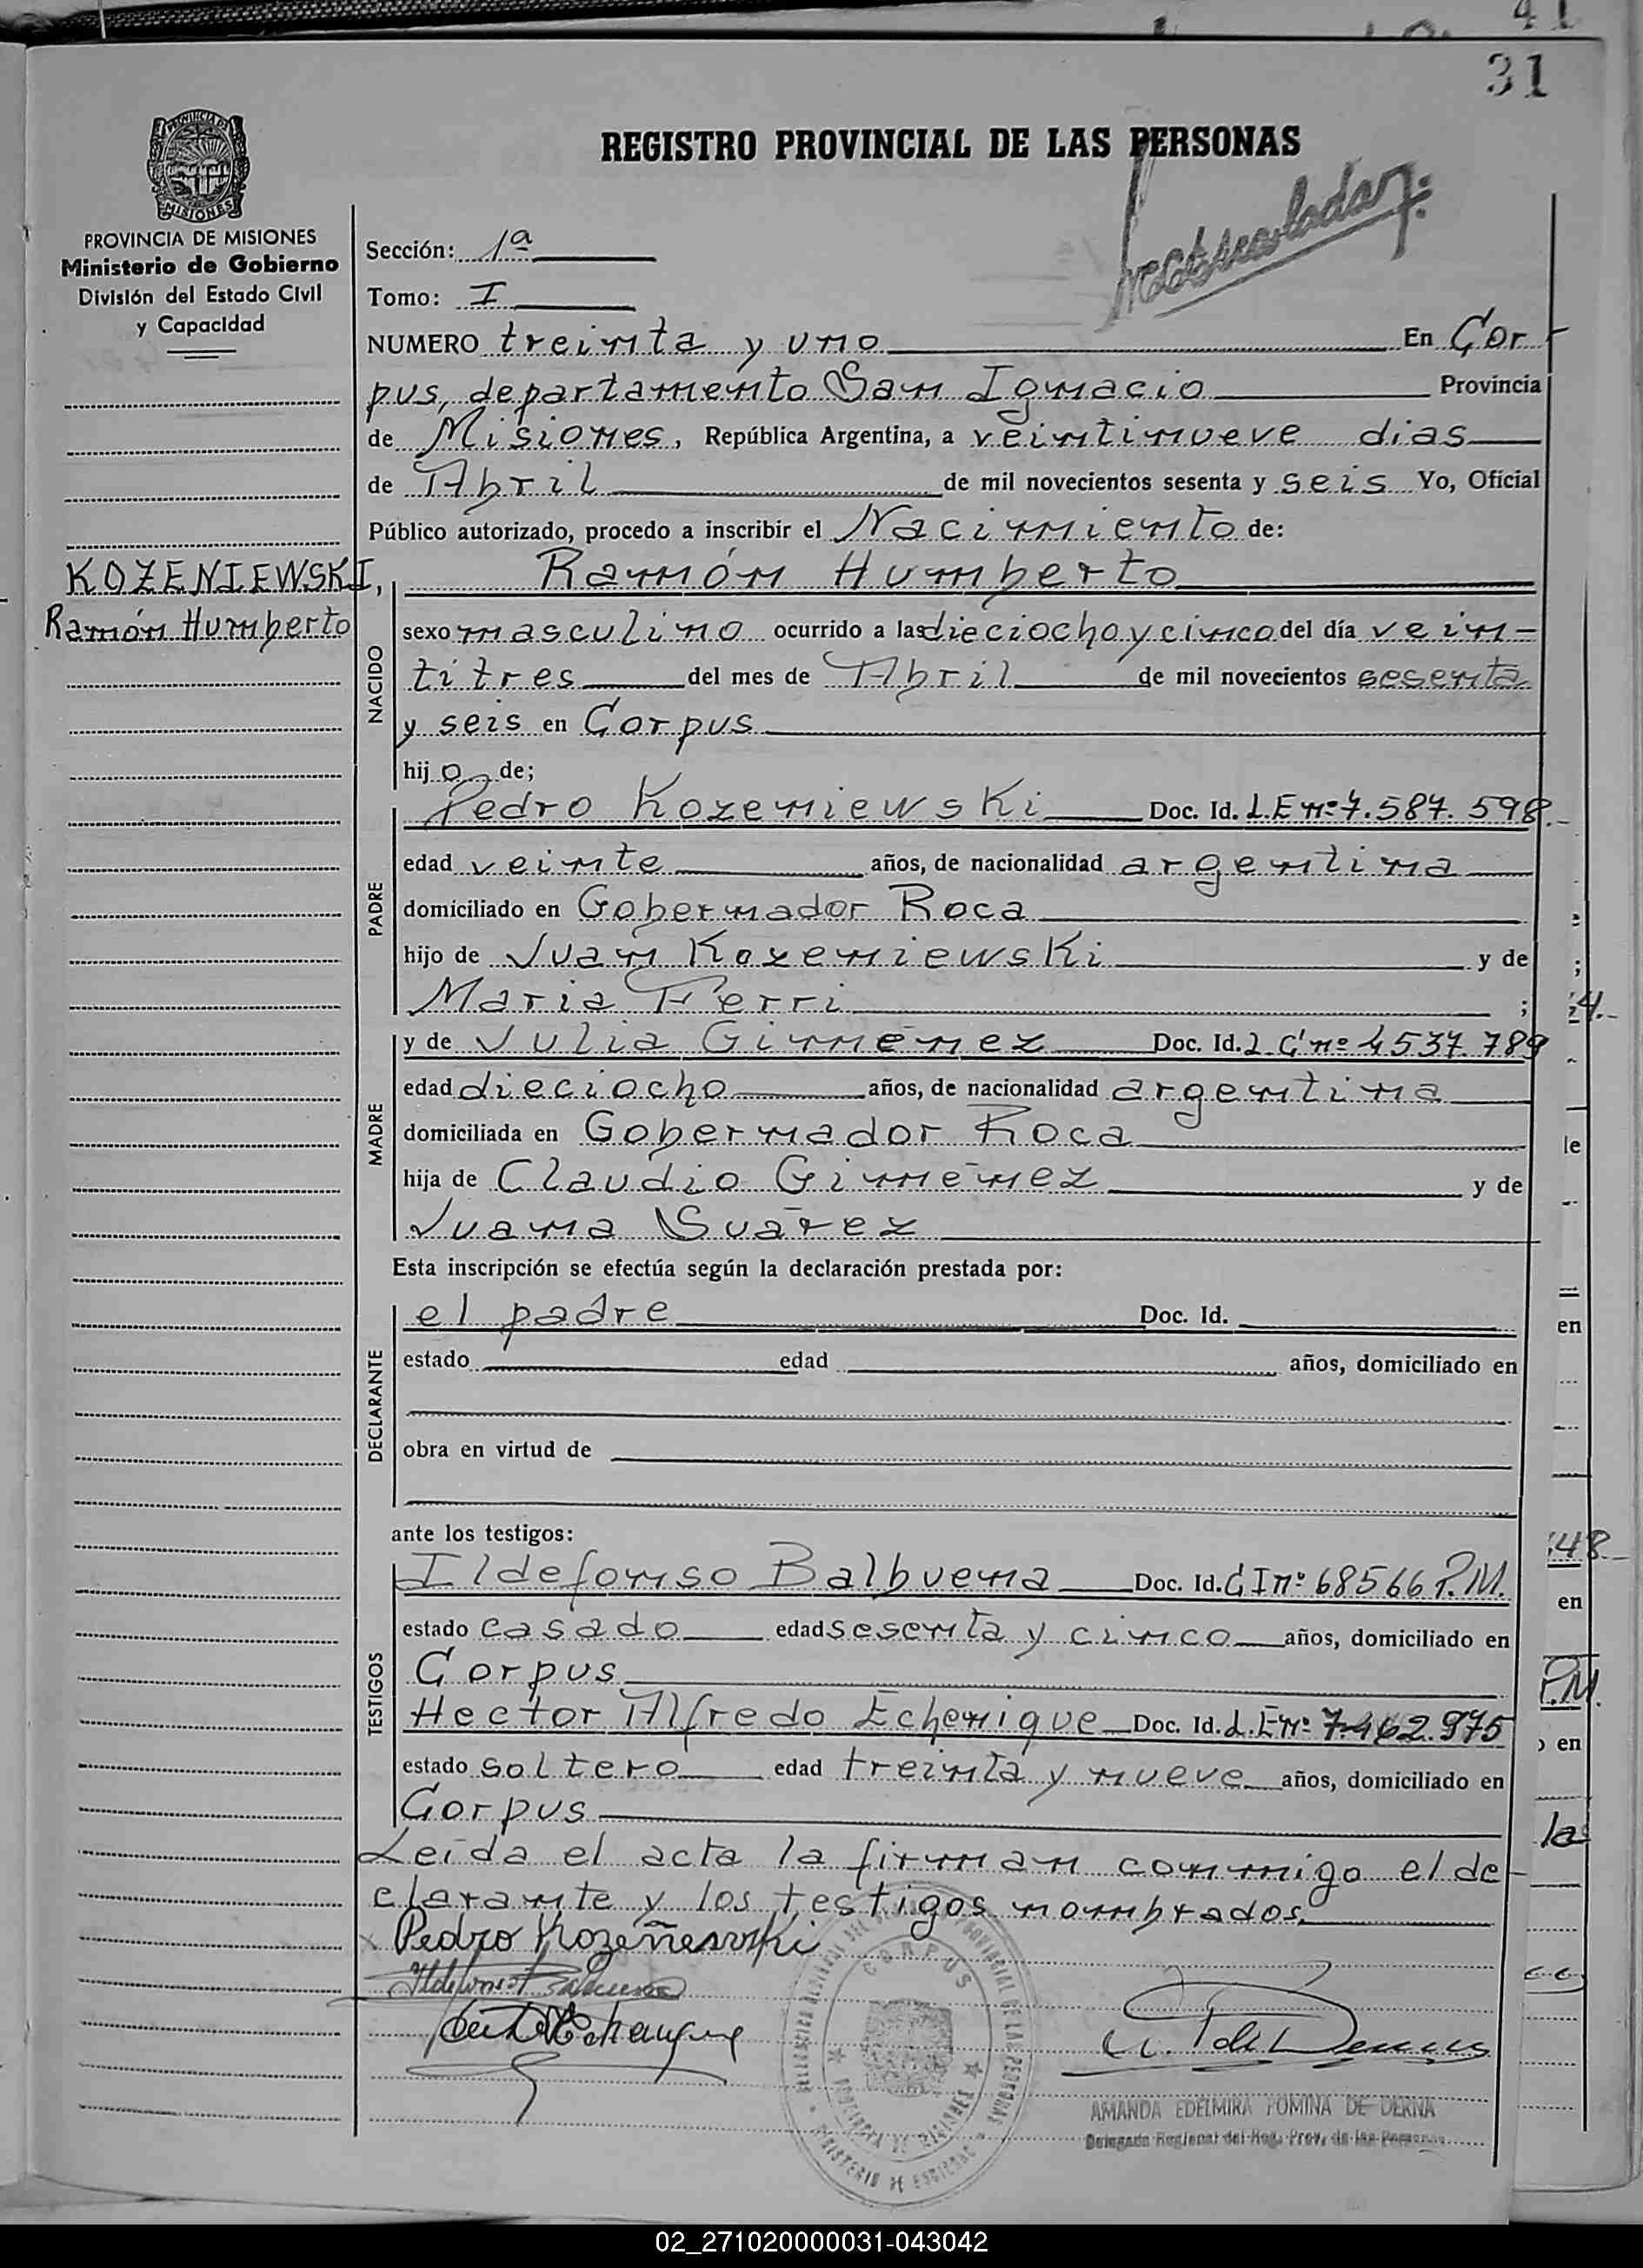 41
31
REGISTRO PROVINCIAL DE LAS PERSONAS
PROVINCIA DE MISIONES
Ministerio de Gobierno
División del Estado Civil
y Capacidad
Sección: 1ª
Tomo: I
NUMERO treinta y uno En Cor
pus, departamento San Ignacio Provincia
de Misiones, República Argentina, a veintinueve dias
de Abril de mil novecientos sesenta y seis Yo, Oficial
Público autorizado, procedo a inscribir el Nacimiento de:
KOZENIEWSKI, Ramón Humberto
Ramón Humberto
NACIDO
sexo masculino ocurrido a las dieciocho y cinco del día vein-
titres del mes de Abril de mil novecientos sesenta
y seis en Corpus
hijo de;
PADRE
Pedro Kozeniewski Doc. Id. L.E nº 7.587.598.-
edad veinte años, de nacionalidad argentina
domiciliado en Gobernador Roca
hijo de Juan Kozeniewski y de
Maria Ferri ;
MADRE
y de Julia Giménez Doc. Id. L.C nº 4537.789
edad dieciocho años, de nacionalidad argentina
domiciliada en Gobernador Roca
hija de Claudio Giménez y de
Juana Suárez
Esta inscripción se efectúa según la declaración prestada por:
DECLARANTE
el padre Doc. Id.
estado edad años, domiciliado en
obra en virtud de
ante los testigos:
TESTIGOS
Ildefonso Balbuena Doc. Id. C I nº 68566 P.M.
estado casado edad sesenta y cinco años, domiciliado en
Corpus
Hector Alfredo Echenique Doc. Id. L.E nº 7.462.975
estado soltero edad treinta y nueve años, domiciliado en
Corpus
Leída el acta la firman conmigo el de-
clarante y los testigos nombrados.
Pedro Kozeñewski
CORPUS
PROVINCIA DE MISIONES
MINISTERIO DE GOBIERNO
AMANDA EDELMIRA POMINA DE DERNA
Delegada Regional del Reg. Prov. de las Personas
02_271020000031-043042